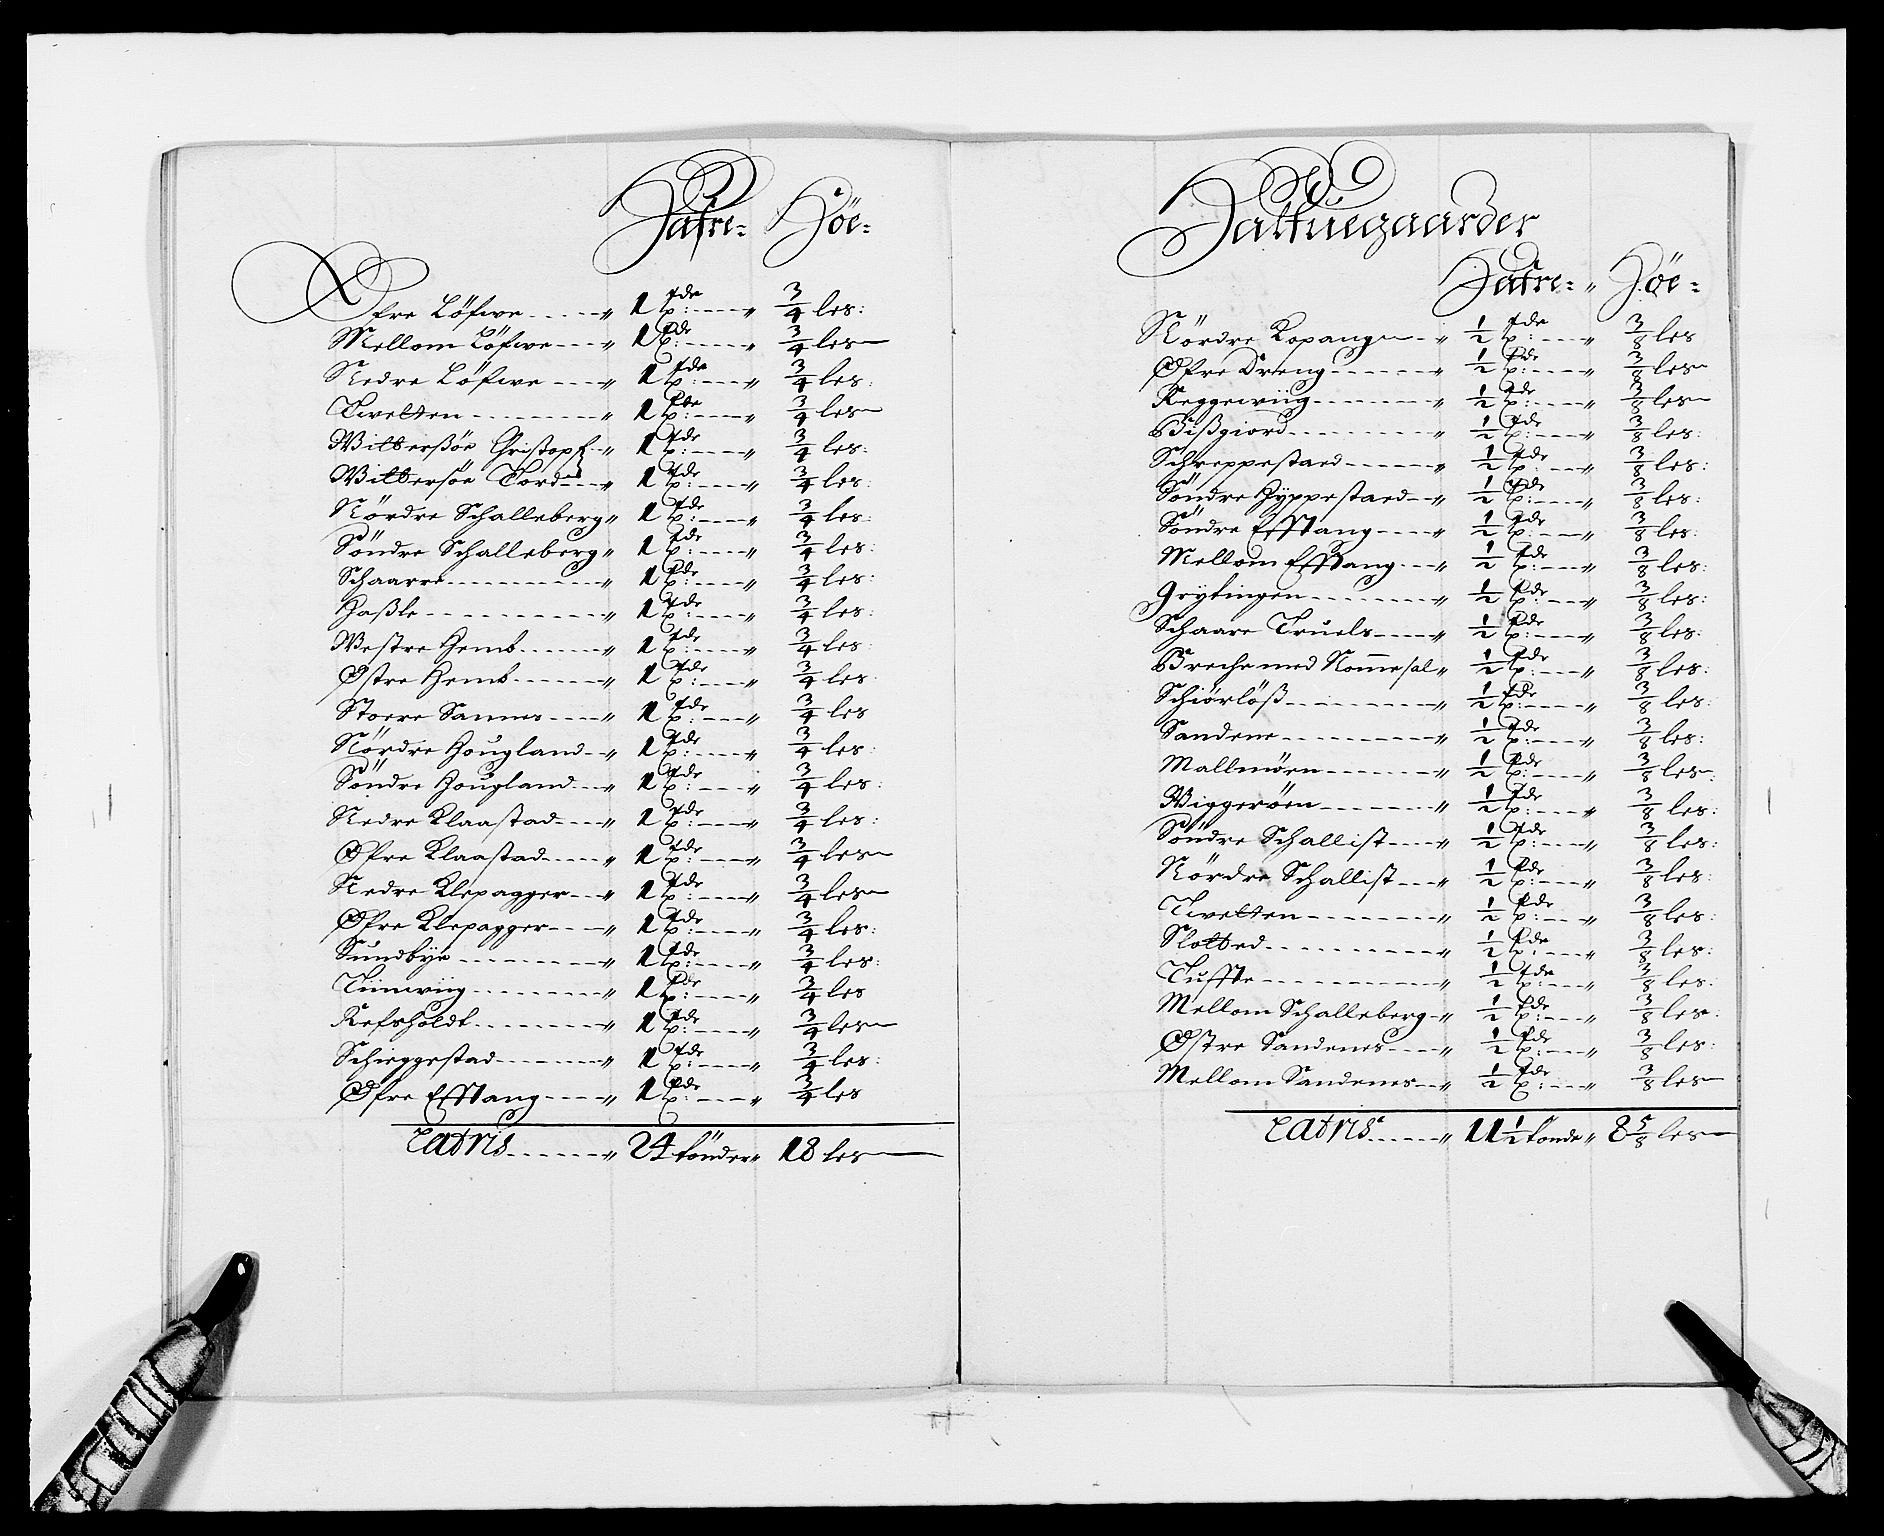 Hafre- Höe-
Øfre Löfwe " 1 tde " 3/4 les:
Mellom Löfwe " 1 tde " 3/4 les
Nedre Löfwe " 1 tde " 3/4 les:
Twetten " 1 tde " 3/4 les
Wittersöe Christopf " 1 tde " 3/4 les:
Wittersöe Tord " 1 tde " 3/4 les:
Nördre Schalleberg " 1 tde " 3/4 les:
Söndre Schalleberg " 1 tde " 3/4 les:
Schaarre " 1 tde " 3/4 les:
Haßle " 1 tde " 3/4 les:
Westre Hemb " 1 tde " 3/4 les:
Østre Hemb " 1 tde " 3/4 les:
Stoere Sannes " 1 tde " 3/4 les
Nördre Hougland " 1 tde " 3/4 les:
Söndre Hougland " 1 tde " 3/4 les:
Nedre Klaastad " 1 tde " 3/4 les:
Øfre Klaastad " 1 tde " 3/4 les
Nedre Klepagger " 1 tde " 3/4 les
Øfre Klepagger " 1 tde " 3/4 les:
Sundbye " 1 tde " 3/4 les:
Tiinwiig " 1 tde " 3/4 les
Refsholdt " 1 tde " 3/4 les
Schieggestad " 1 tde " 3/4 les:
Øfre Efftang " 1 tde " 3/4 les
Latris " 24 tönder " 18 les
Halfuegaarder
Hafre- " Höe-
Nördre Kopang " 1/2 tde " 3/8 les
Øfre Dreng " 1/2 tde " 3/8 les
Reggewiig " 1/2 tde " 3/8 les
Bißgiord " 1/2 tde " 3/8 les:
Schreppestaed " 1/2 tde " 3/8 les:
Söndre Hyppestaed " 1/2 tde " 3/8 les:
Söndre Efftang " 1/2 tde " 3/8 les:
Mellom Efftang " 1/2 tde " 3/8 les:
Grytingen " 1/2 tde " 3/8 les:
Schaare Truels " 1/2 tde " 3/8 les:
Breche med Nommesal " 1/2 tde " 3/8 les:
Schiörlöß " 1/2 tde " 3/8 les:
Sandene " 1/2 tde " 3/8 les:
Mallmöen " 1/2 tde " 3/8 les:
Wiggeröen " 1/2 tde " 3/8 les:
Söndre Schallist " 1/2 tde " 3/8 les:
Nördre Schallist " 1/2 tde " 3/8 les:
Twetten " 1/2 tde " 3/8 les:
Slotted " 1/2 tde " 3/8 les:
Tuffte " 1/2 tde " 3/8 les:
Mellom Schalleberg " 1/2 tde " 3/8 les:
Østre Sandenes " 1/2 tde " 3/8 les:
Mellom Sandenes " 1/2 tde " 3/8 les
Latris " 11 1/2 tönde " 8 5/8 les